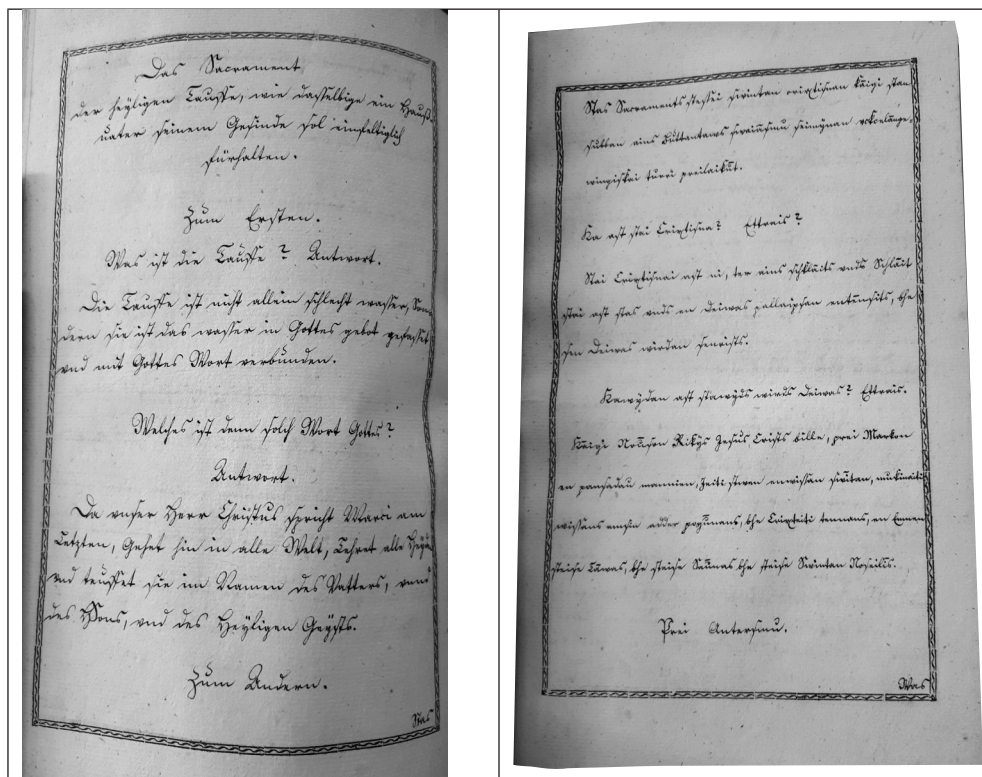 Das Sacrament
der heÿligen Tauffe, wie dasselbige ein Hauß-
uater seinem Gesinde sol einfeltiglich
fürhalten.
Zum Ersten.
Was ist die Tauffe? Antwort.
Die Tauffe ist nicht allein schlecht wasser, Son
dern sie ist das wasser in Gottes gebot gefasset
vnd mit Gottes Wort verbunden.
Welches ist denn solch Wort Gottes?
Antwort.
Da vnser Herr Christus spricht Marci am
Letzten, Gehet hin in alle Welt, Lehret alle
vnd teuffet sie im Namen des Vatters, vnnd
des Sons, vnd des Heÿligen Geÿsts.
Zum Andern.
Stas
Stas Sacraments stessei swintan crixtisnan käigi stan
sutten ains Buttantaws swaiāsmu seimÿnan
turri preilaikut.
Ka ast stai Crixtisna? Ettrais?
Stai Crixtisnai ast ni, ter ains schkläits vnds Schläit
stai ast stas vnds en Deiwas pallaipsan entensits, bhe
sen Deiwas wirdan senrists.
Kawÿdan ast stawÿds wirds Deiwas? Ettrais.
Käigi Noūson Rikÿs Jesus Crists bille, prei Markon
en pansdadau mannien, Jeiti stwen enwissan swītan, mukinaiti
wissans amsin adder pogūnans, bhe Crixtiti tennans, en Emnen
steise Tāwas, bhe steise Saūnas bhe steise Swintan Noseilis.
Prei Antersmu.
Was